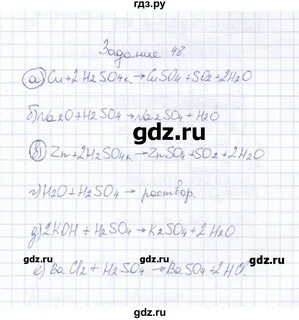 гдз.ру
Задание 48.
а) Cu+2H2SO4к.→CuSO4+SO2+2H2O
б) Na2O+H2SO4→Na2SO4+H2O
gdz.ru
в) Zn+2H2SO4к→ZnSO4+SO2+2H2O
г) H2O+H2SO4→раствор.
gdz.ru
д) 2KOH+H2SO4→K2SO4+2H2O
е) BaCl2+H2SO4→BaSO4+2HCl.
gdz.ru